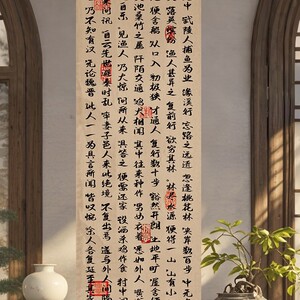 中 武陵人捕鱼为业 缘溪行 忘路之远近 忽逢桃花林 夹岸数百步 中无
落英缤纷 渔人甚异之 复前行 欲穷其林 林尽水源 便得一山 山有小
便舍船 从口入 初极狭 才通人 复行数十步 豁然开朗 土地平旷 屋舍
池桑竹之属 阡陌交通 鸡犬相闻 其中往来种作 男女衣着 悉如
自乐 见渔人 乃大惊 问所从来 具答之 便要还家 设酒杀鸡作食 村中
来问讯 自云先世避秦时乱 率妻子邑人来此绝境 不复出焉 遂与外人间隔
乃不知有汉 无论魏晋 此人一一为具言所闻 皆叹惋 余人各复延至